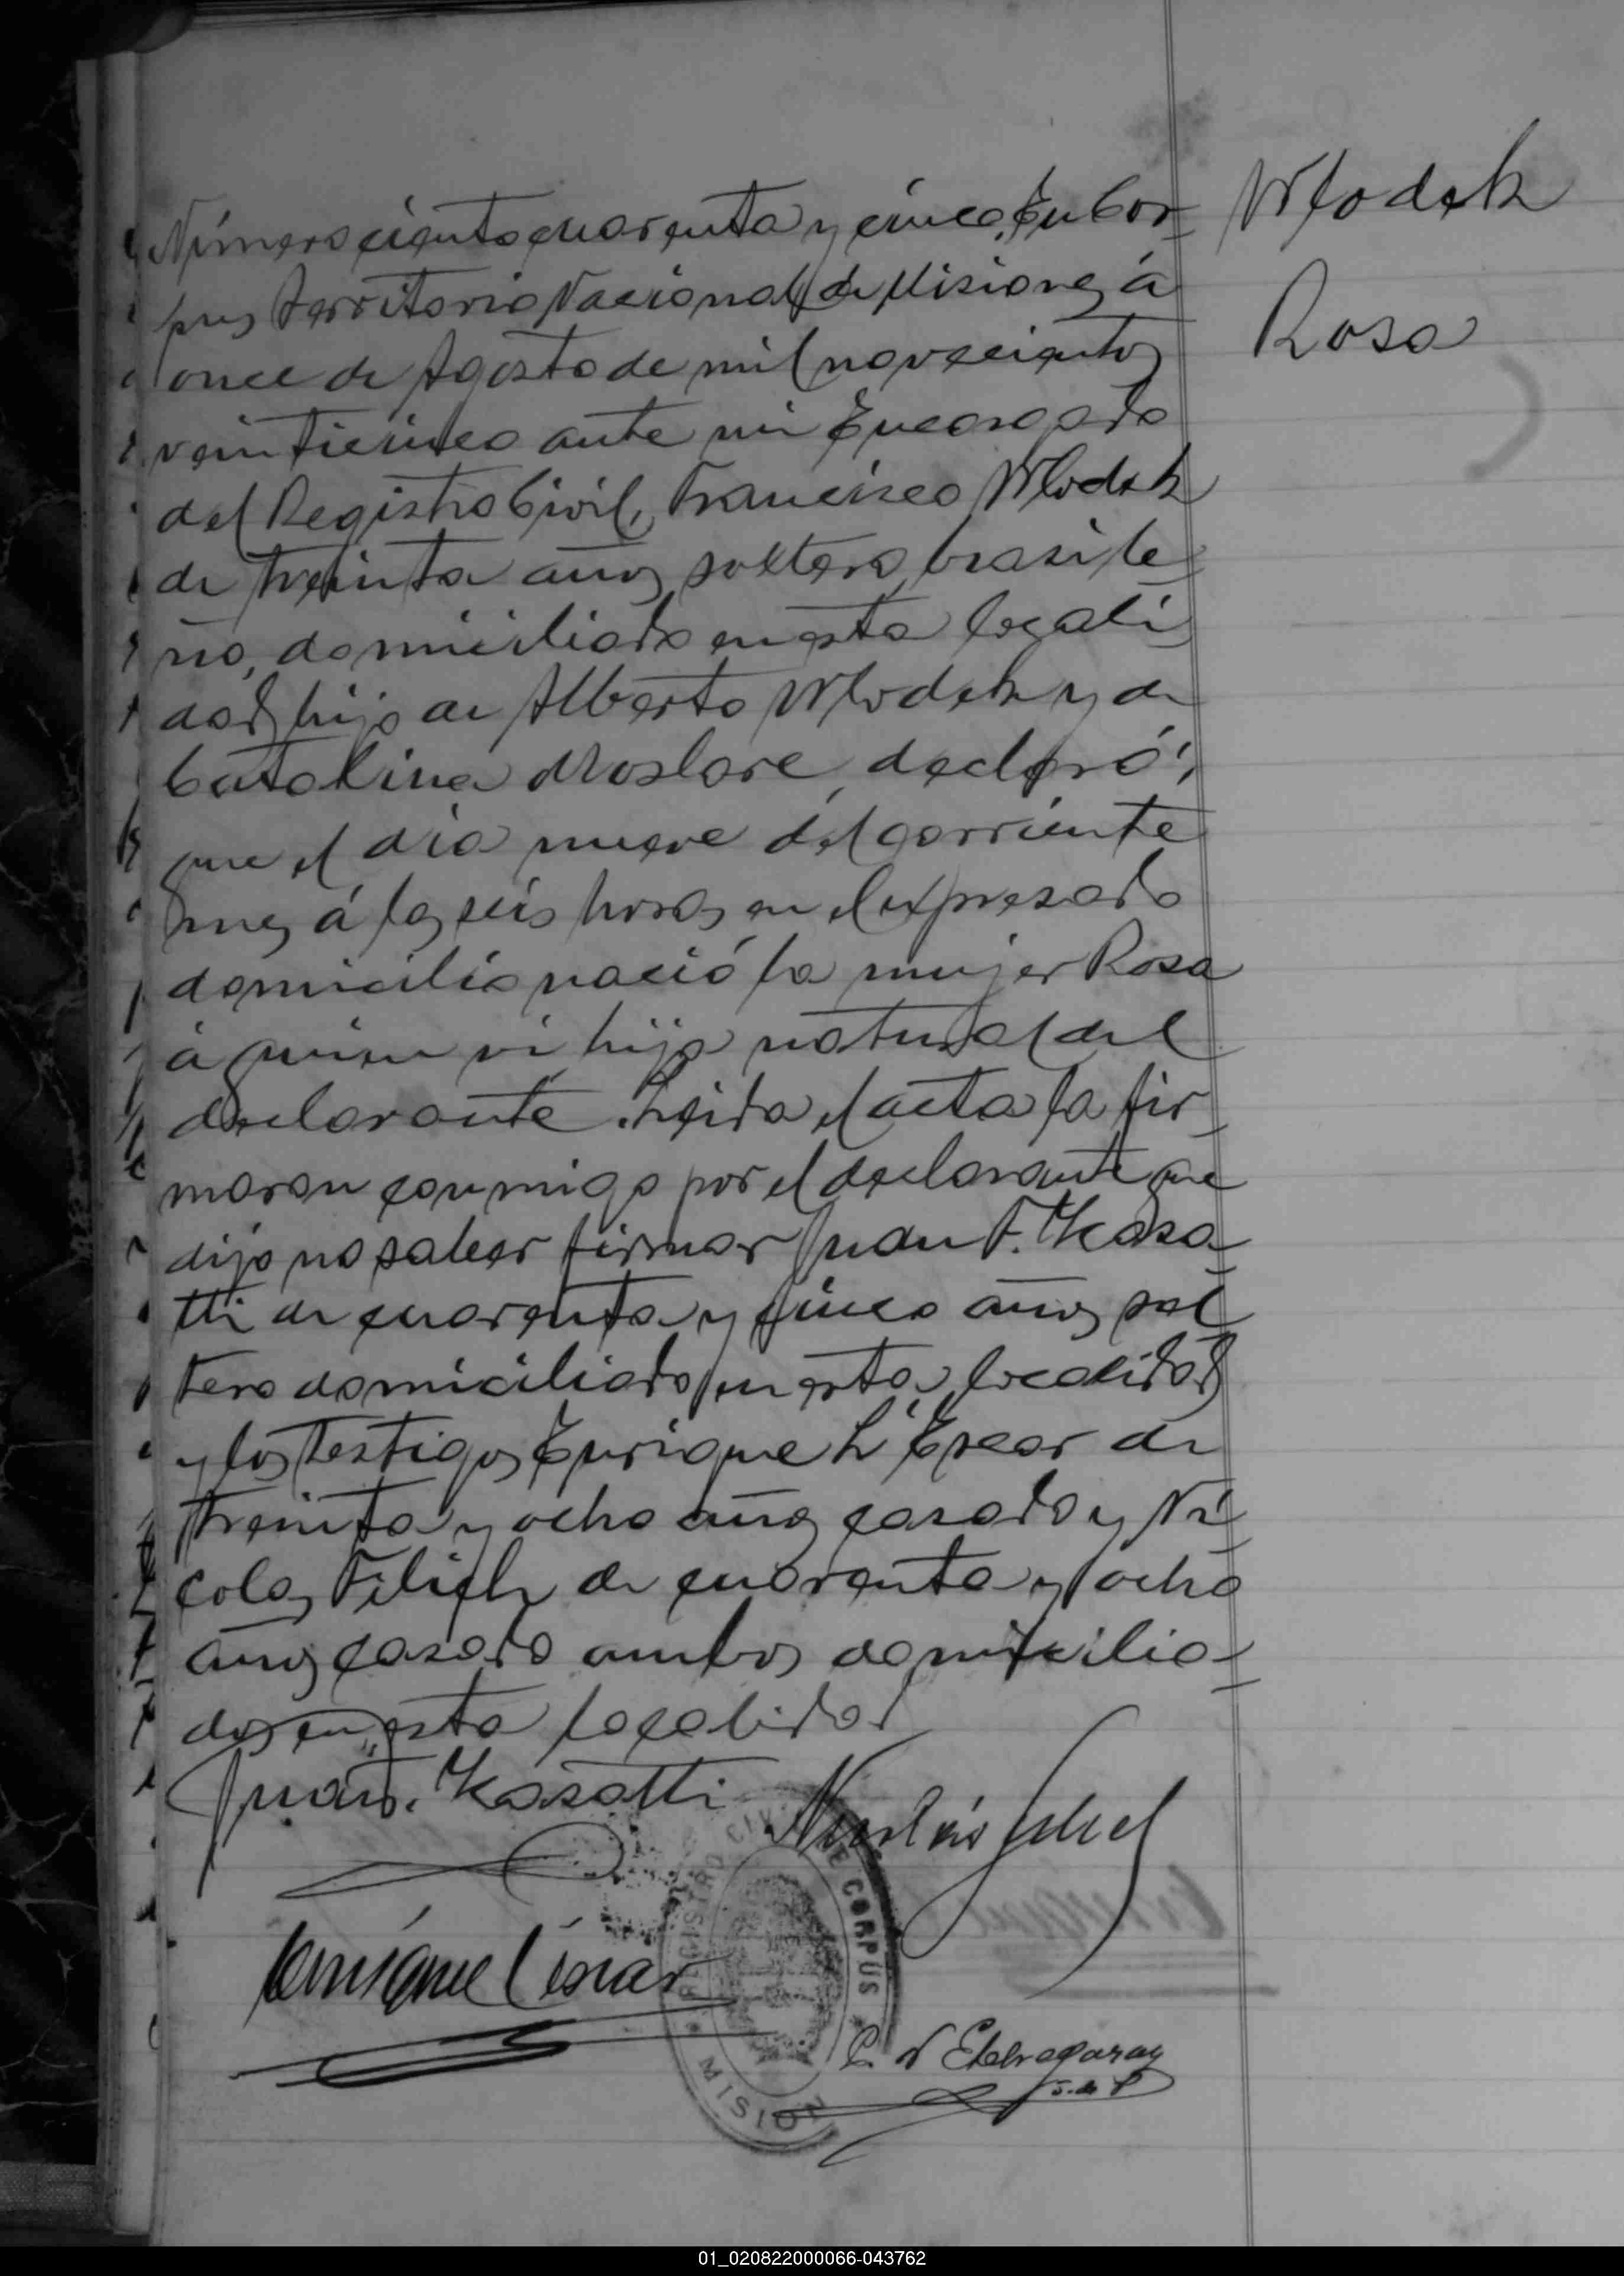 Número ciento cuarenta y cinco. En Cor-
pus Territorio Nacional de Misiones á
once de Agosto de mil novecientos
veinticinco ante mi Encargado
del Registro Civil, Francisco Wlodek
de treinta años soltero, brasile
ño, domiciliado en esta locali
dad, hijo de Alberto Wlodek y de
Catalina declaró;
que el día nueve del corriente
mes á las seis horas en el expresado
domicilio nació la mujer Rosa
á quien vi hija natural del
declarante. Leida el acta la fir-
maron conmigo por el declarante que
dijo no saber firmar Juan F. Kasa-
tti de cuarenta y cinco años sol
tero domiciliado en esta localidad
y los testigos Enrique L'Escar de
treinta y ocho años casado y Ni
colas de cuarenta y ocho
años casado ambos domicilia-
dos en esta localidad
Juan F. Kasatti
Nicolás
Enrique Lescar
Etchegaray
J. de P.
REGISTRO CIVIL DE CORPUS
MISIONES
Wlodek
Rosa
01_020822000066-043762